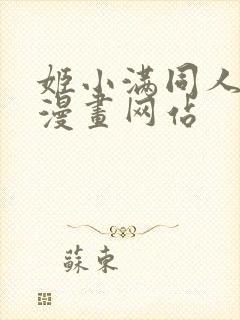 姬小满同人
漫畫网站
蘇東